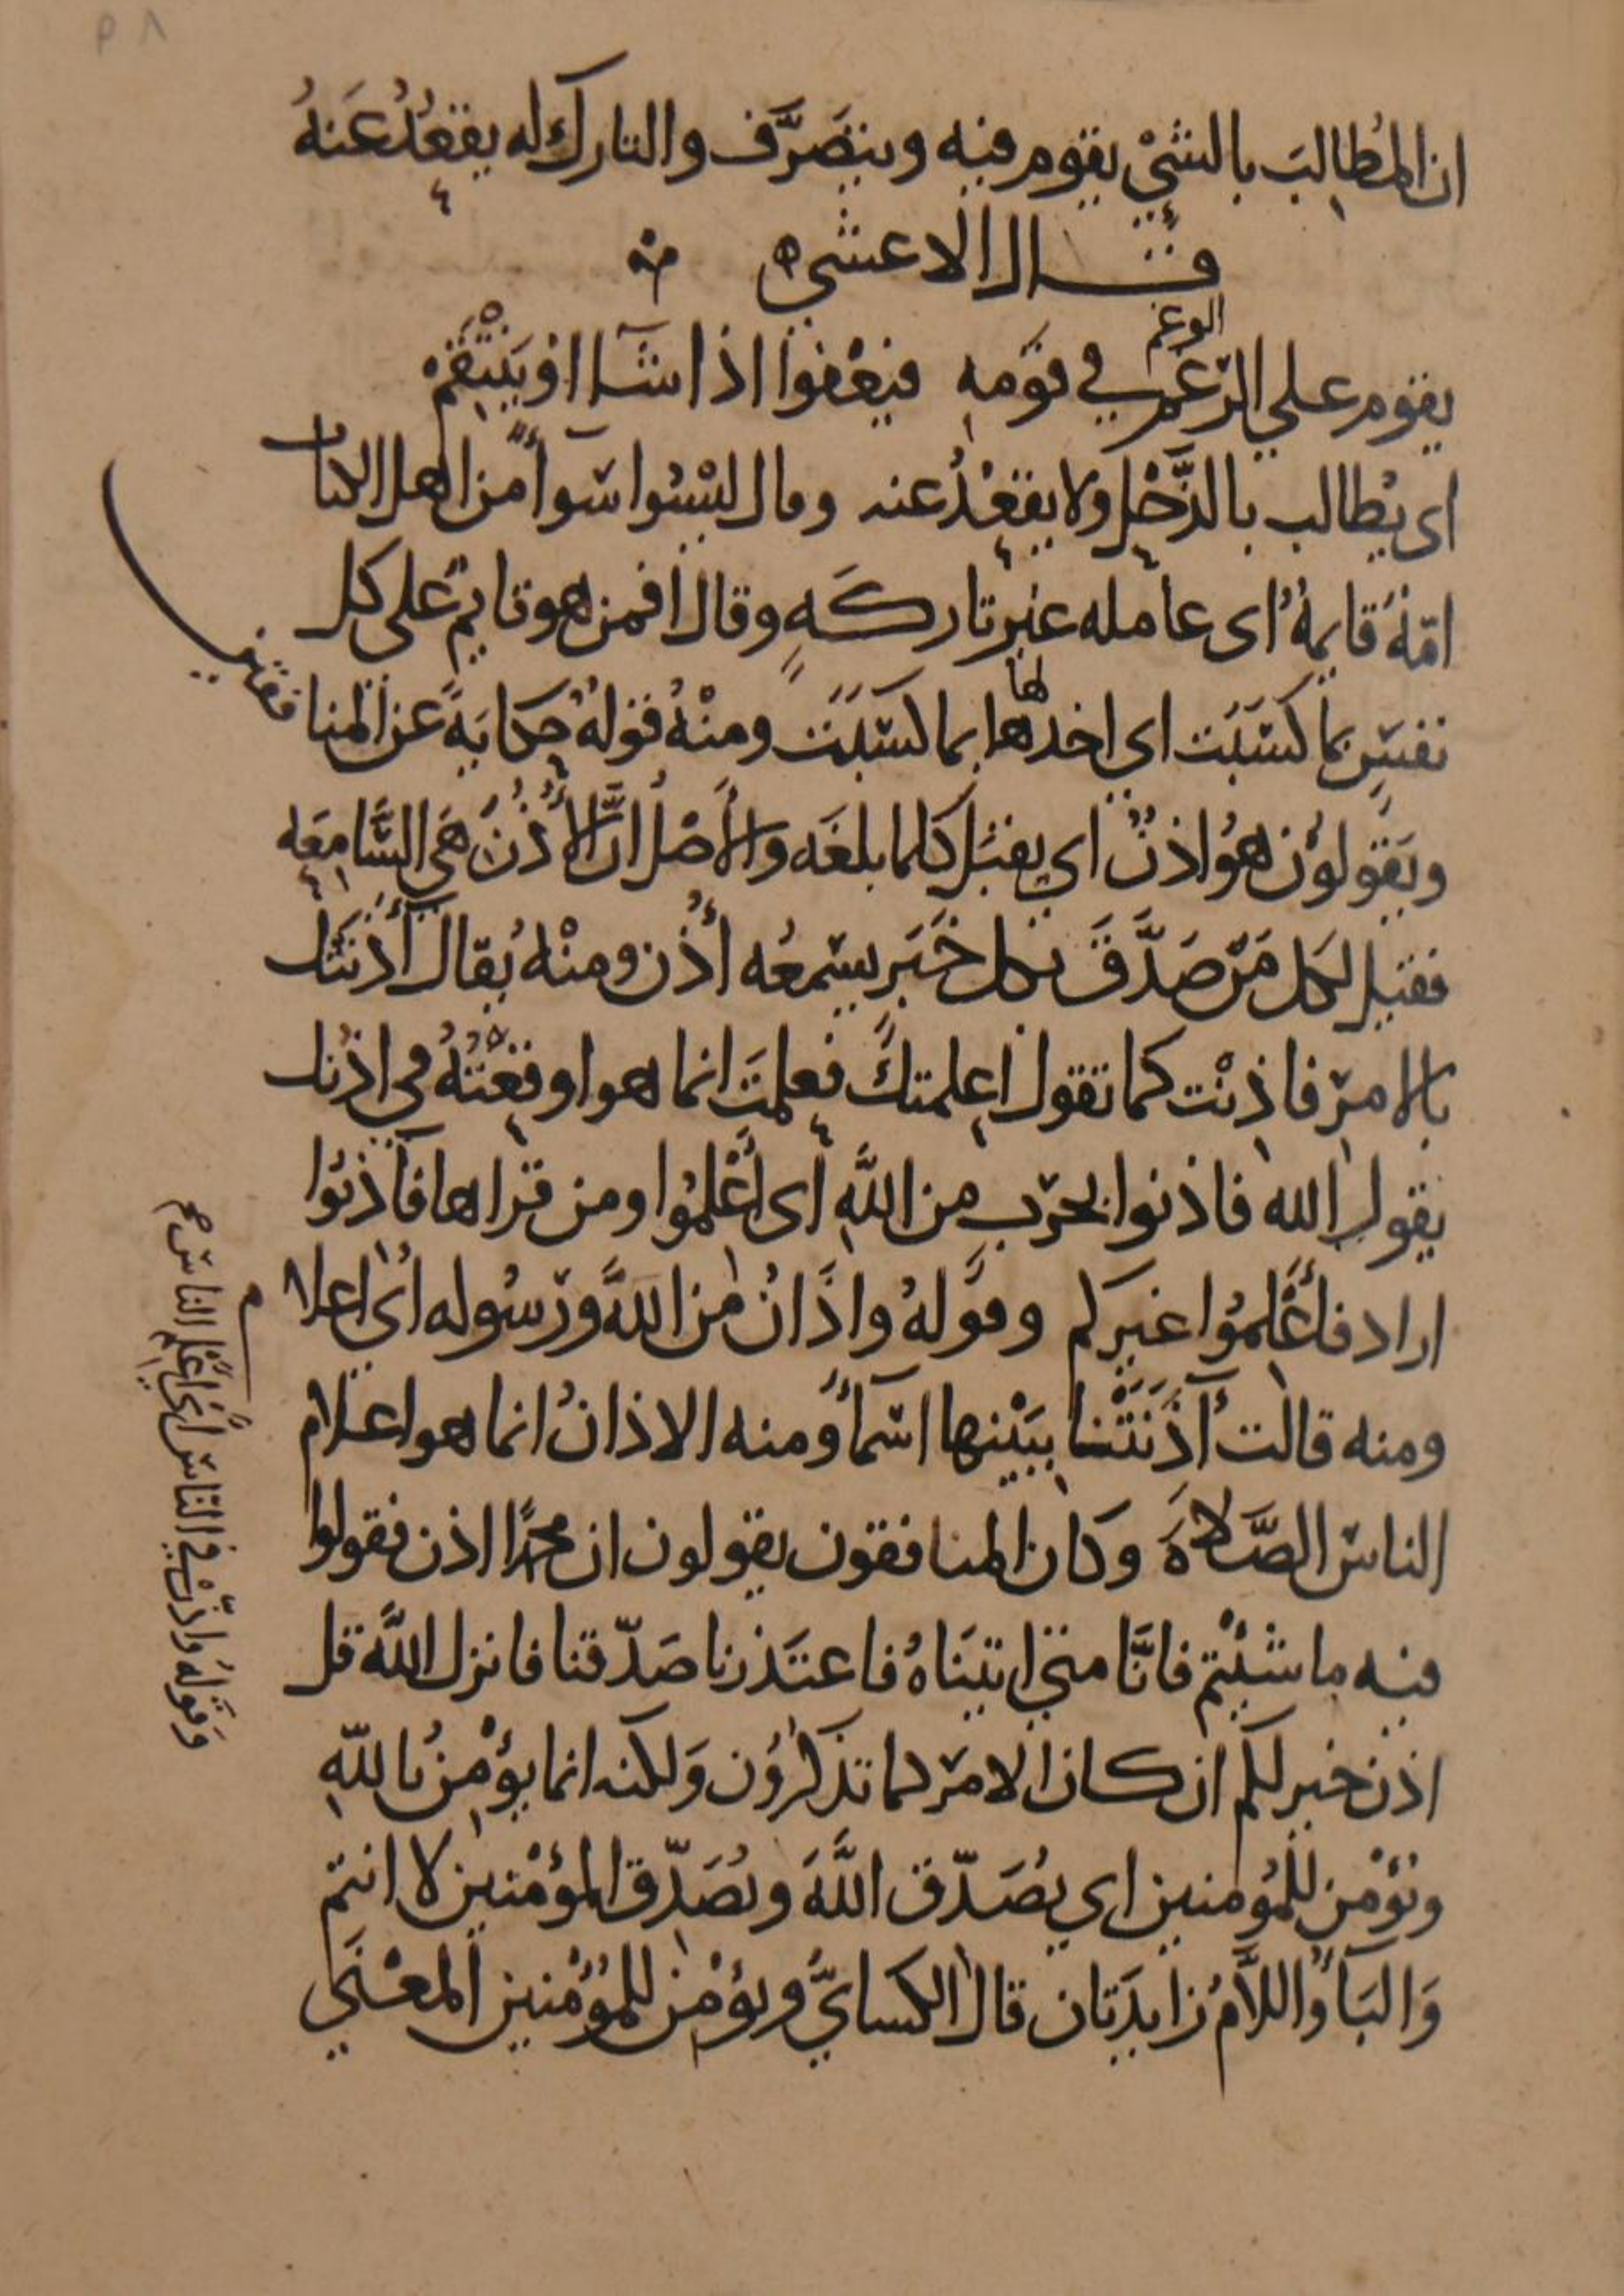 ٨٩
ان المُطالِبَ بالشيْ يقوم فيه ويتصَرَّف والتارك له يقعُدُ عَنهُ
قال الاعشي
يقوم على الرغم في قومهِ فيعْفوا اذا شاا او يَنْتَقِمْ
الوغم
اى يُطالب بالذَّحْلِ ولا يقعْدُ عنه وقال ليْسُوا سَواً من اهل الكتاب
امّةٌ قايمةٌ اى عامله غير تاركَهٍ وقال افمن هو قايمٌ على كل
نفسٍ بما كسَبَت اي اخذها بما كسَبَت ومنْهُ قولهُ حكايَةً عن المنافقين
لها
ويَقولوُن هوُ اذنٌ اي يقبَل كلما بلغَه والأَصْل انَّ الأُذُنَ هَي السَّامِعَه
فقيل لكل مَن صَدَّقَ بكل خَبَرٍ يسمعُه أُذُن ومنْهُ يُقال آذَنتُك
بالامرِ فاذِنْت كما تقول اعلمتكَ فعلمتَ انما هو اوقعْتُهُ في اذنك
يقول الله فاذنوا بحرب من اللَّهِ اى اعْلمُوا ومن قراها فآذنوا
اراد فأَعْلِمُوا غيركم وقوَلهُ واذَانٌ من اللَّه ورسُوله اى اعلام
وَقَولهُ واذّنْ في النّاس اَى اَعْلِم الناس
ومنه قالت آذَنَتْنا ببَيْنها اسَمأُ ومنه الاذانُ انما هو اعلام
الناس الصَّلاةَ وكان المنافقون يقولون ان محمدًا اذن فقولوا
فيه ما شئْتم فانَّا متى اتيَناهُ فاعتَذرنا صَدّقنا فانزل اللَّه قل
اذن خير لكم ان كان الامر كما تذكروُن وَلكنه انما يؤْمِنُ باللّهِ
ويؤْمن للمُؤمنين اي يُصَدّق اللَّهَ ويُصَدّق المؤْمنين لا انتم
وَالبَأُ واللاَّمُ زايدَتان قال الكسايُّ ويؤْمن للمؤُمنين المعْنَي